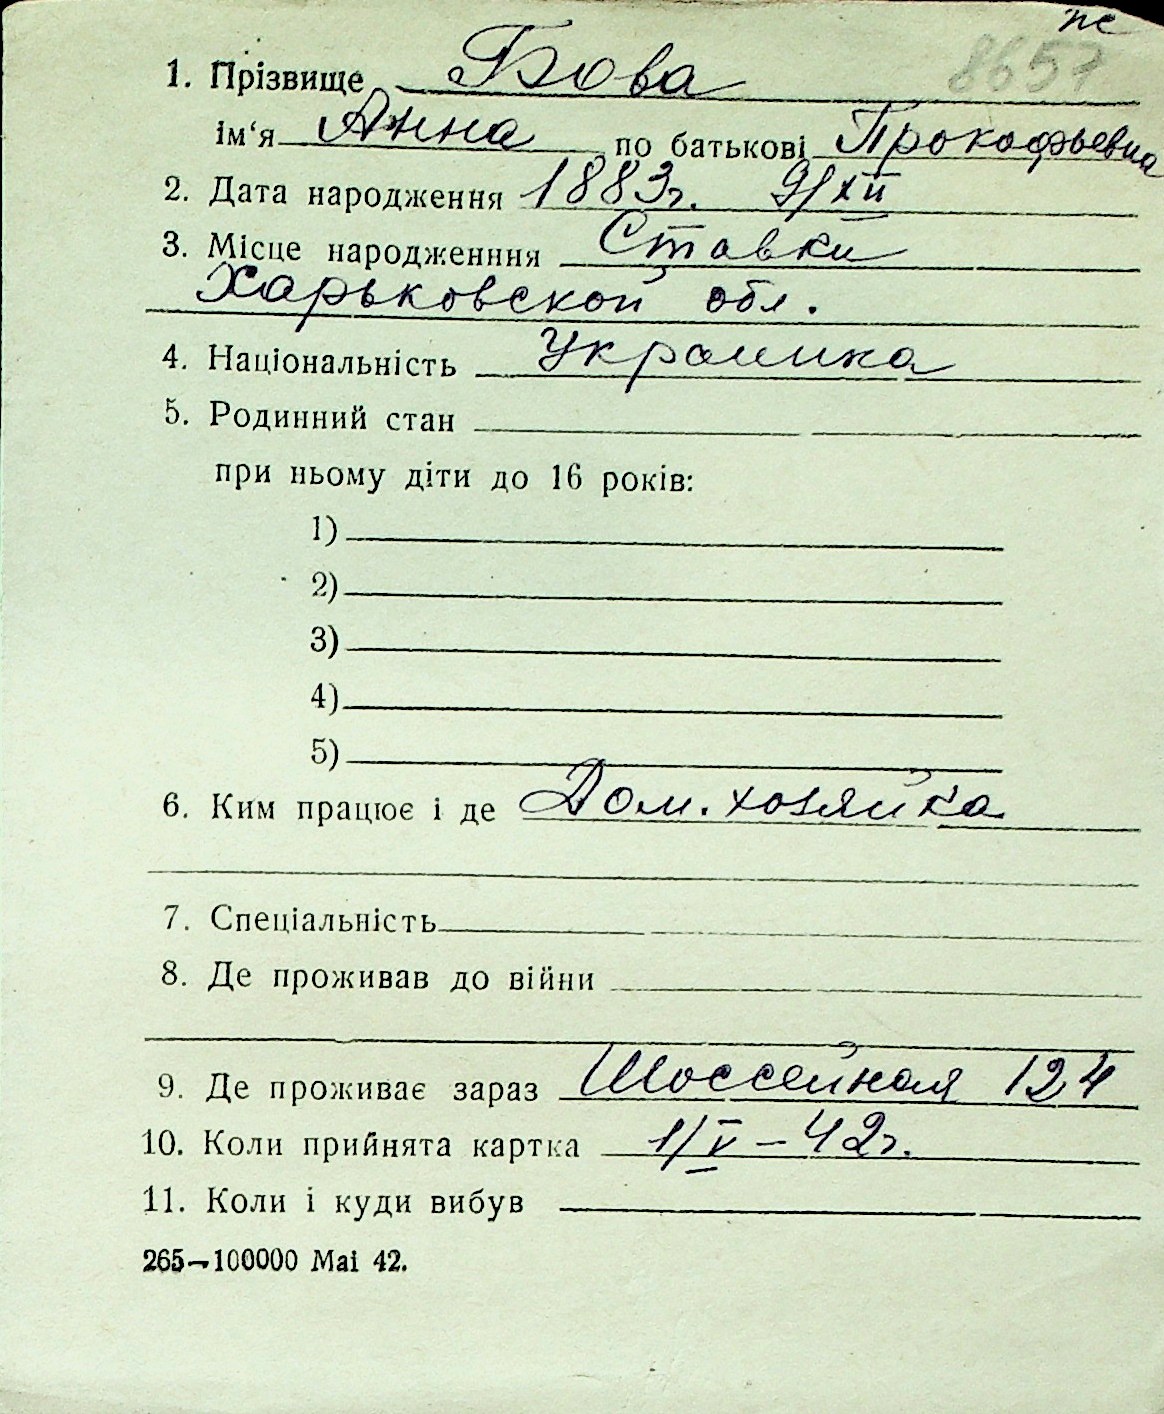 пс
8657
1. Прізвище Бова
ім‘я Анна по батькові Прокофьевна
2. Дата народження 1883г. 9/XII
3. Місце народженння Ставки
Харьковской обл.
4. Національність Украинка
5. Родинний стан
при ньому діти до 16 років:
1)
2)
3)
4)
5)
6. Ким працює і де Дом. хозяйка
7. Спеціальність
8. Де проживав до війни
9. Де проживає зараз Шоссейная 124
10. Коли прийнята картка 1/V – 42г.
11. Коли і куди вибув
265—100000 Mai 42.